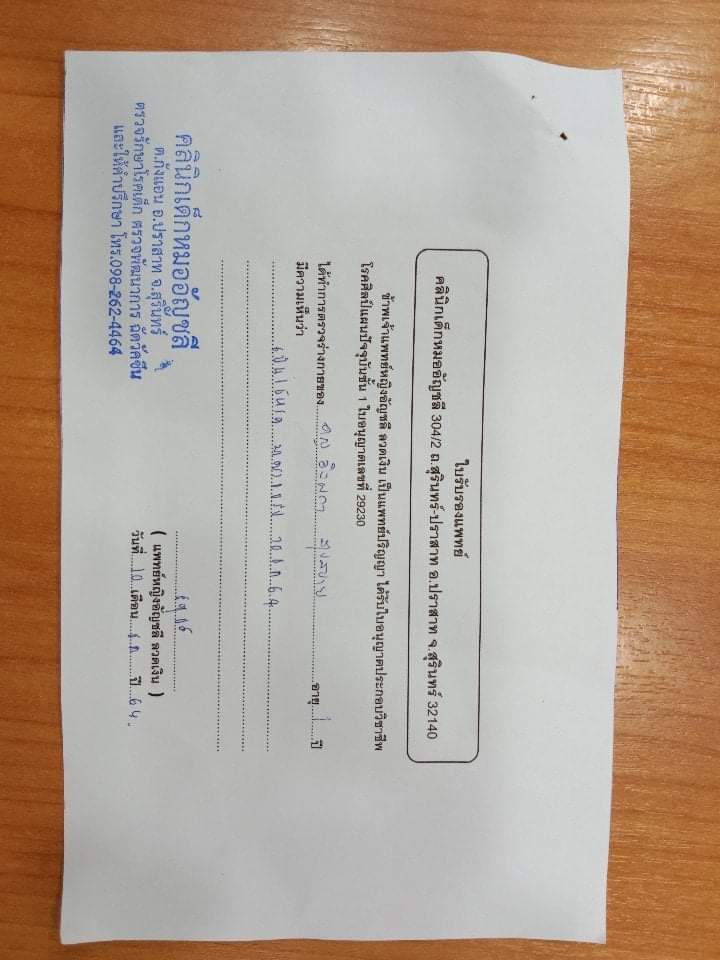 ใบรับรองแพทย์
คลินิกเด็กหมออัญชลี 304/2 ถ.สุรินทร์-ปราสาท อ.ปราสาท จ.สุรินทร์ 32140
ข้าพเจ้าแพทย์หญิงอัญชลี ลวดเงิน เป็นแพทย์ปริญญา ได้รับใบอนุญาตประกอบวิชาชีพ
โรคศิลป์แผนปัจจุบันชั้น 1 ใบอนุญาตเลขที่ 29230
ได้ทำการตรวจร่างกายของ อายุ 1 ปี
มีความเห็นว่า
10 ธค 64
( แพทย์หญิงอัญชลี ลวดเงิน )
วันที่ 10 เดือน ธค ปี 64
คลินิกเด็กหมออัญชลี
ต.กังแอน อ.ปราสาท จ.สุรินทร์
ตรวจรักษาโรคเด็ก ตรวจพัฒนาการ ฉีดวัคซีน
และให้คำปรึกษา โทร.098-262-4464